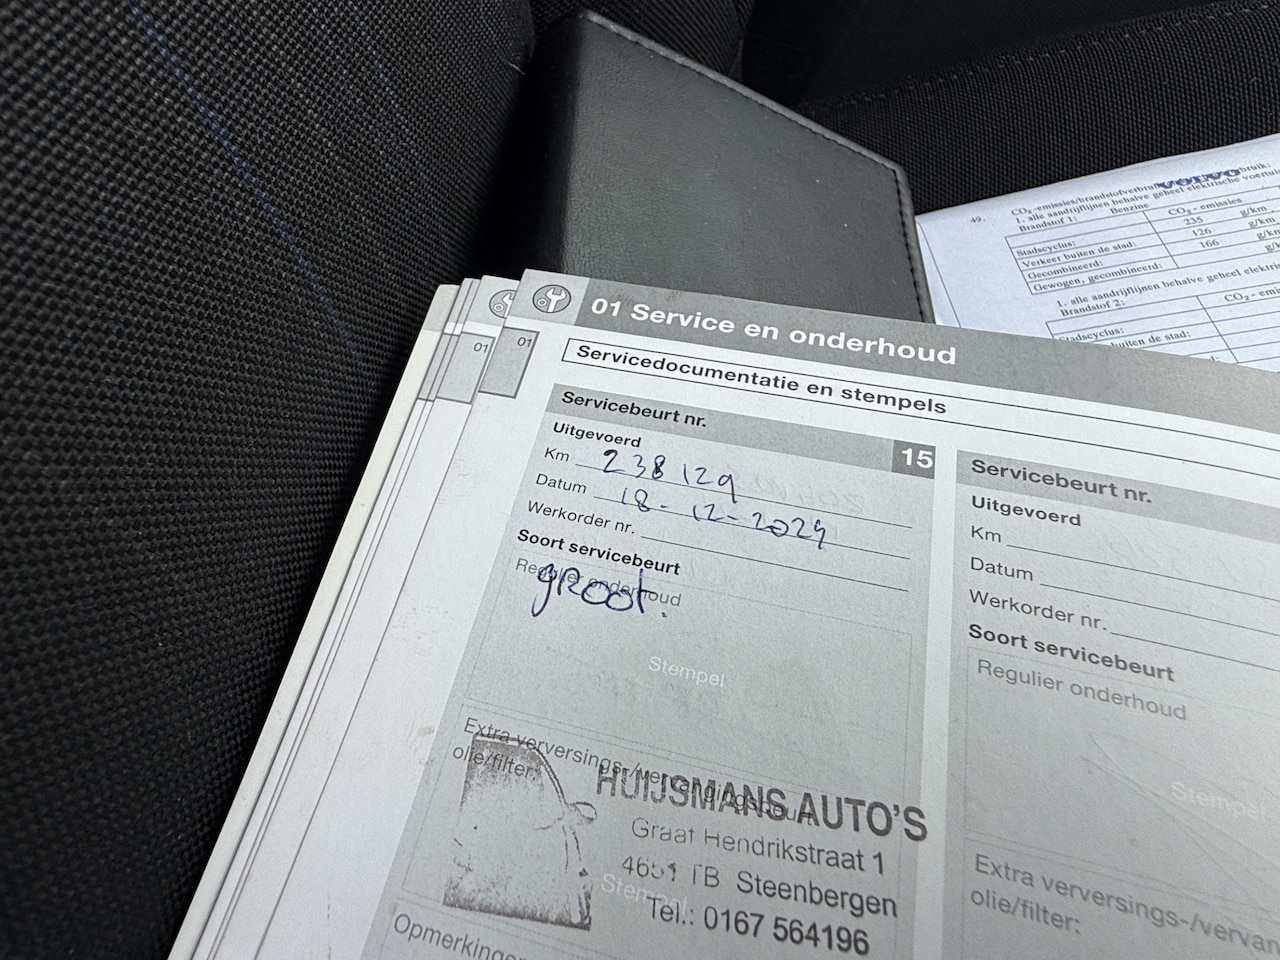 49. CO₂-emissies/brandstofverbruik:
VOLVO
1. alle aandrijflijnen behalve geheel elektrische
Brandstof 1: Benzine
CO₂ - emissies
Stadscyclus: 235 g/km
Verkeer buiten de stad: 126 g/km
Gecombineerd: 166 g/km
Gewogen, gecombineerd:
1. alle aandrijflijnen behalve geheel
Brandstof 2:
CO₂ -
Stadscyclus:
buiten de stad:
01 Service en onderhoud
01
01
Servicedocumentatie en stempels
Servicebeurt nr. 15
Uitgevoerd
Km 238129
Datum 18-12-2024
Werkorder nr.
Soort servicebeurt
Regulier onderhoud
groot.
Stempel
Extra verversings-/vervangingsbeurt
olie/filter:
HUIJSMANS AUTO'S
Graaf Hendrikstraat 1
4651 TB Steenbergen
Stempel
Tel.: 0167 564196
Opmerkingen
Servicebeurt nr.
Uitgevoerd
Km
Datum
Werkorder nr.
Soort servicebeurt
Regulier onderhoud
Stempel
Extra verversings-/vervan
olie/filter: